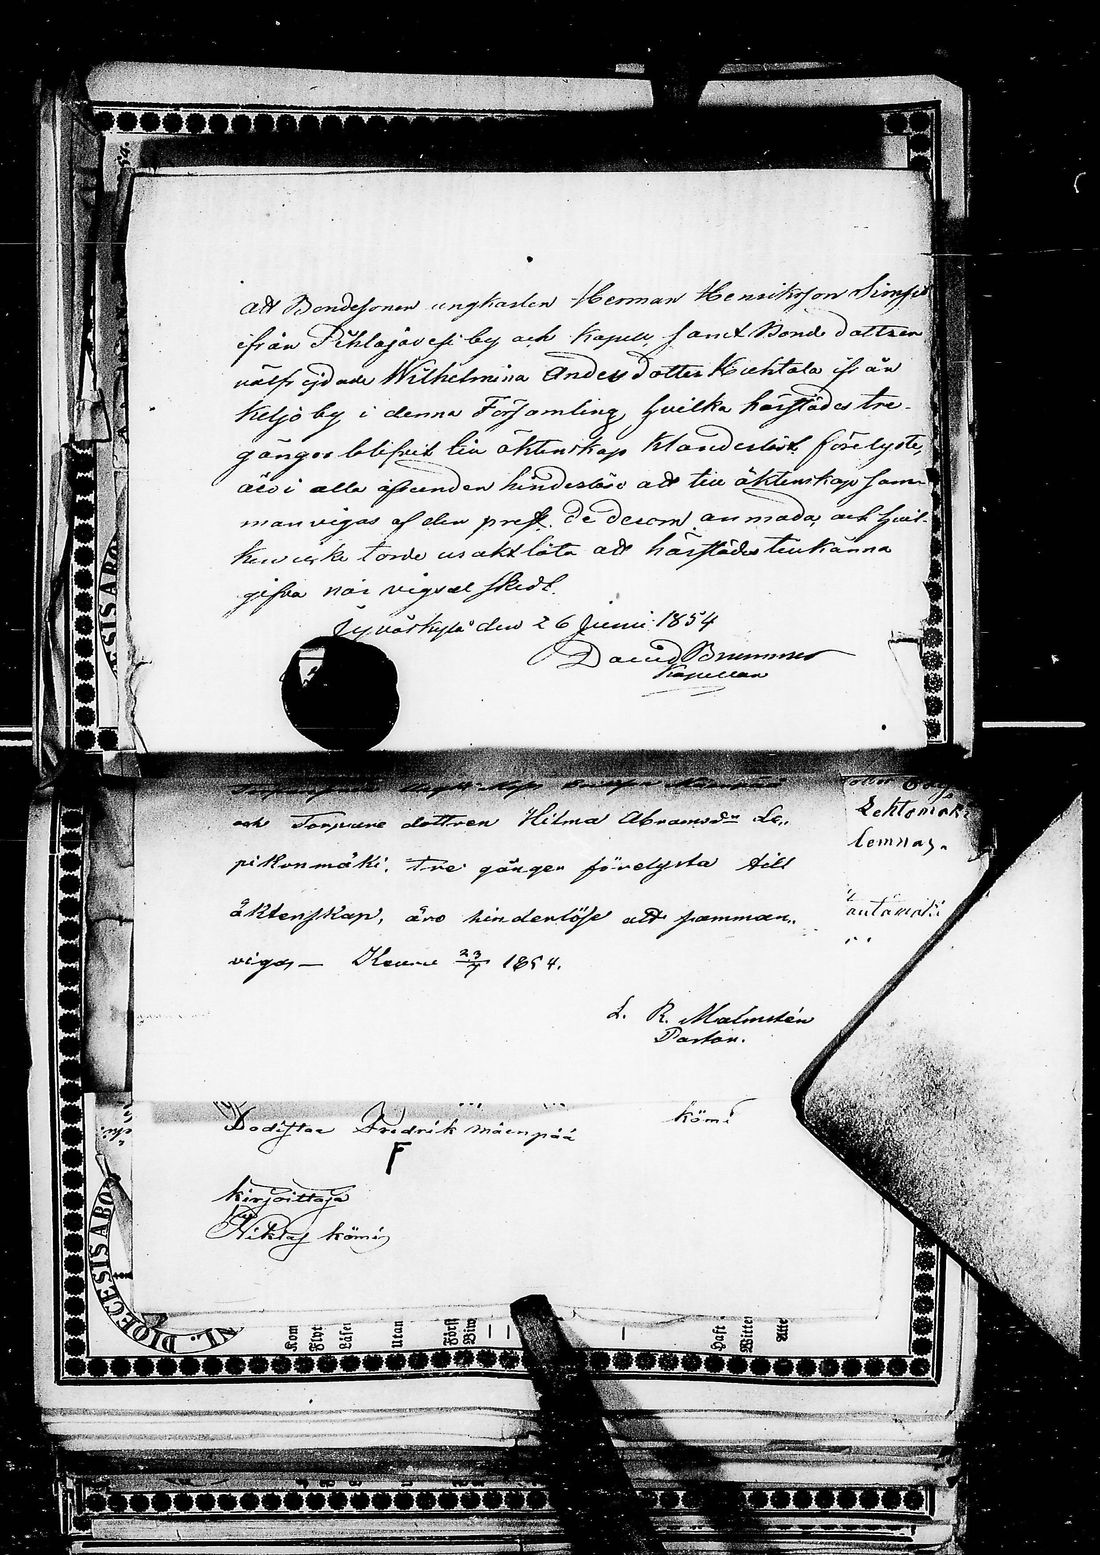 att Bondesonen ungkarlen Herman Henriksson Simsiö
ifrån Pihlajavesi by och Kapell samt Bonde dottren
välfrejdade Wilhelmina Andersdotter Kuhtala ifrån
Keljo by i denna Församling, hvilka härstädes tre-
gångor blifvit till äktenskap klanderlöst förelyste,
äro i alla afseenden hinderlöse att till äktenskap sam-
manvigas af den prest de desom anmoda, och hvil-
ken icke torde usaktlåta att härstädes tillkänna
gifva när vigsel skedt.
Jyväskylä den 26 Juni 1854
David Brummer
Kapellan
och Torpare dottren Hilma Abramsdr Le,,
pikonmäki, tre gånger förelysta till
äktenskap, äro hinderlöse att samman,,
vigas — Keuru 23/7 1854.
L. R. Malmstén
Pastor.
Lehtomäki
Lemnas.
Fredrik Mäenpää
kömi
F
kirjoittaja
Niklas kömi
DIOECESIS ABO
Kom
Flyt
Läser
Utan
Först
Biw
Haft
Witter
Atte